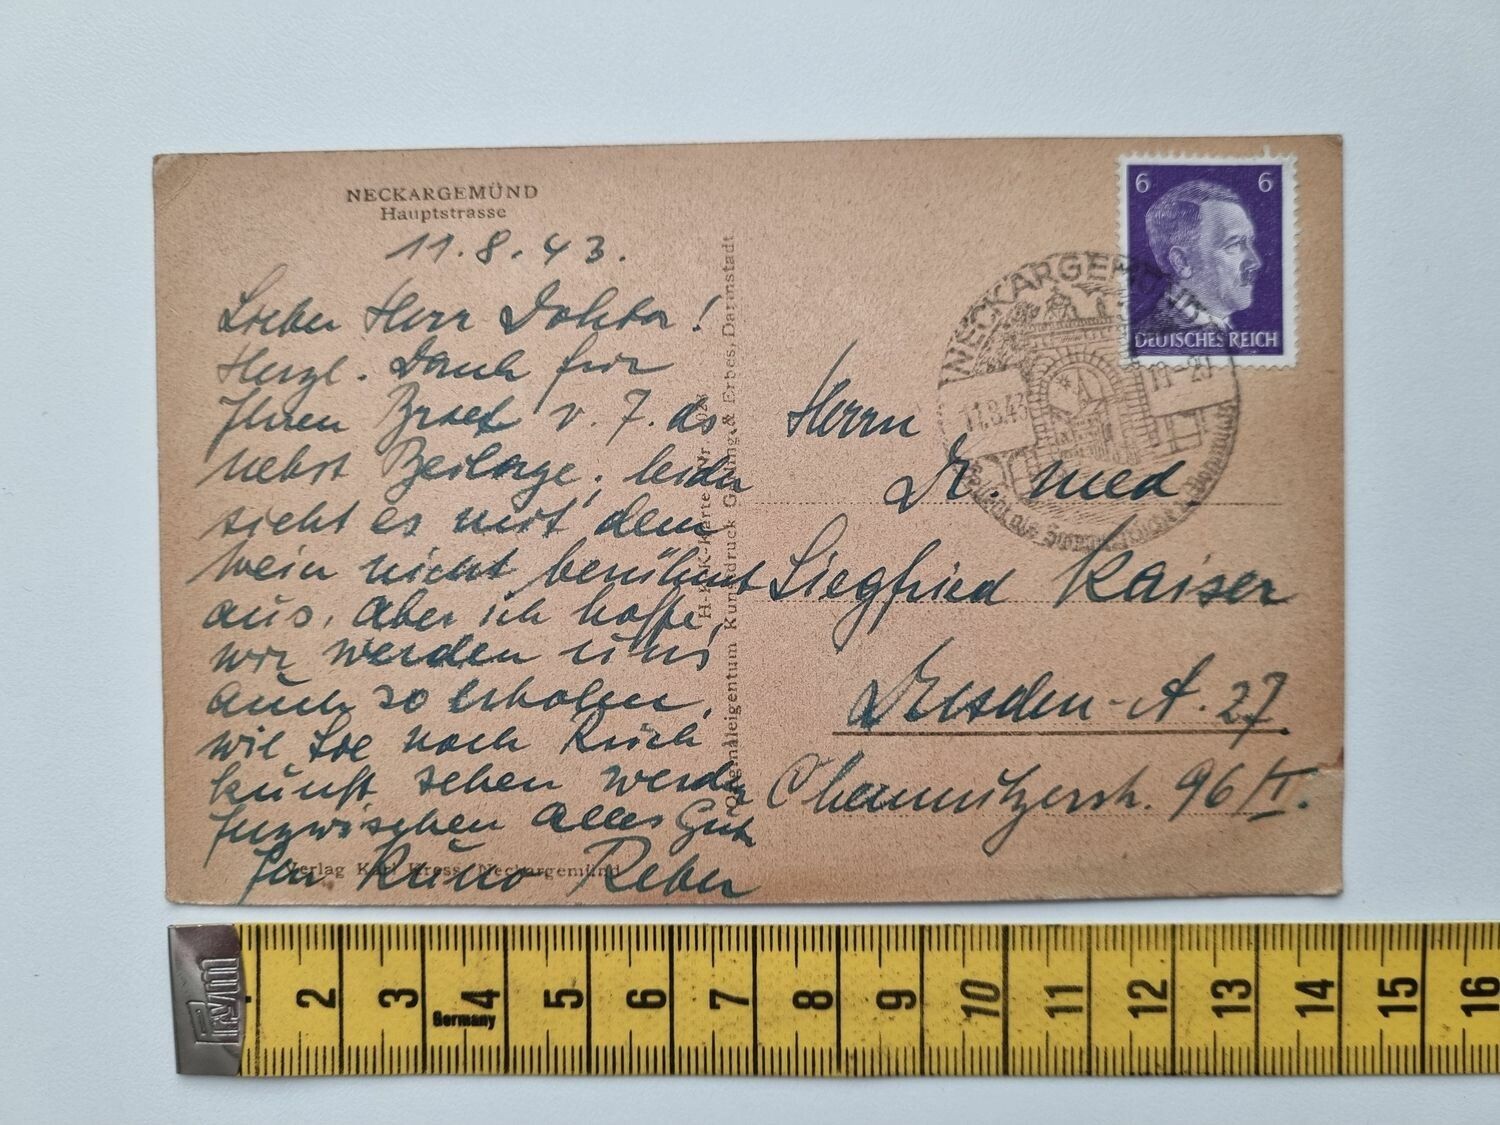 NECKARGEMÜND
Hauptstrasse
11.8.43.
Lieber Herr Doktor!
Herzl. Dank für
Ihren Brief v. 7. ds
nebst Beilage, leider
sieht es mit dem
Wein nicht berühmt
aus. Aber ich hoffe,
wir werden uns
auch so erholen,
wie Sie nach Rück
kunft sehen werden
Inzwischen alles Gute
Ihr Kuno Reber
Verlag Karl Kress, Neckargemünd
H-K-Karte Nr
Originaleigentum Kunstdruck & Erbes, Darmstadt
6 6
DEUTSCHES REICH
NECKARGEMÜND
11.8.43
Herrn
Dr. med.
Siegfried Kaiser
Dresden-A. 27
Chemnitzerstr. 96/II.
Prym
2 3 4 5 6 7 8 9 10 11 12 13 14 15 16
Germany